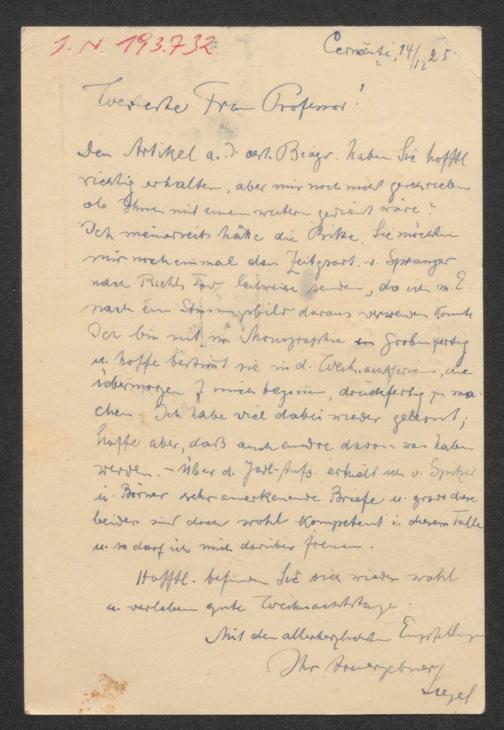 J. N. 193.732
Cernăuţi, 14/12 25
Werteste Frau Professor!
Den Artikel a. d. oest. Biogr. haben Sie hofftl
richtig erhalten, aber mir noch nicht geschrieben
ob Ihnen mit einem weitern gedient wäre?
Ich meinerseits hätte die Bitte, Sie möchten
mir noch einmal den v. Spranger
nach leihweise senden, da ich m. E.
noch ein Stimmungsbild daraus verwenden könnte
Ich bin mit m Monographie im Groben fertig
u. hoffe bestimmt sie in d. Weihnachtsferien, die
übermorgen f mich beginnen, druckfertig zu ma-
chen. Ich habe viel dabei wieder gelernt;
hoffe aber, daß auch andre davon was haben
werden. – Über d. Jodl-Aufs. erhielt ich v. Spitzer
u. Börner sehr anerkennende Briefe u. grade diese
beiden sind doch wohl kompetent i. diesem Falle
u. so darf ich mich darüber freuen.
Hofftl. befinden Sie sich wieder wohl
u. verleben gute Weihnachtstage.
Mit den allerherzlichsten Empfehlungen
Ihr
Siegel